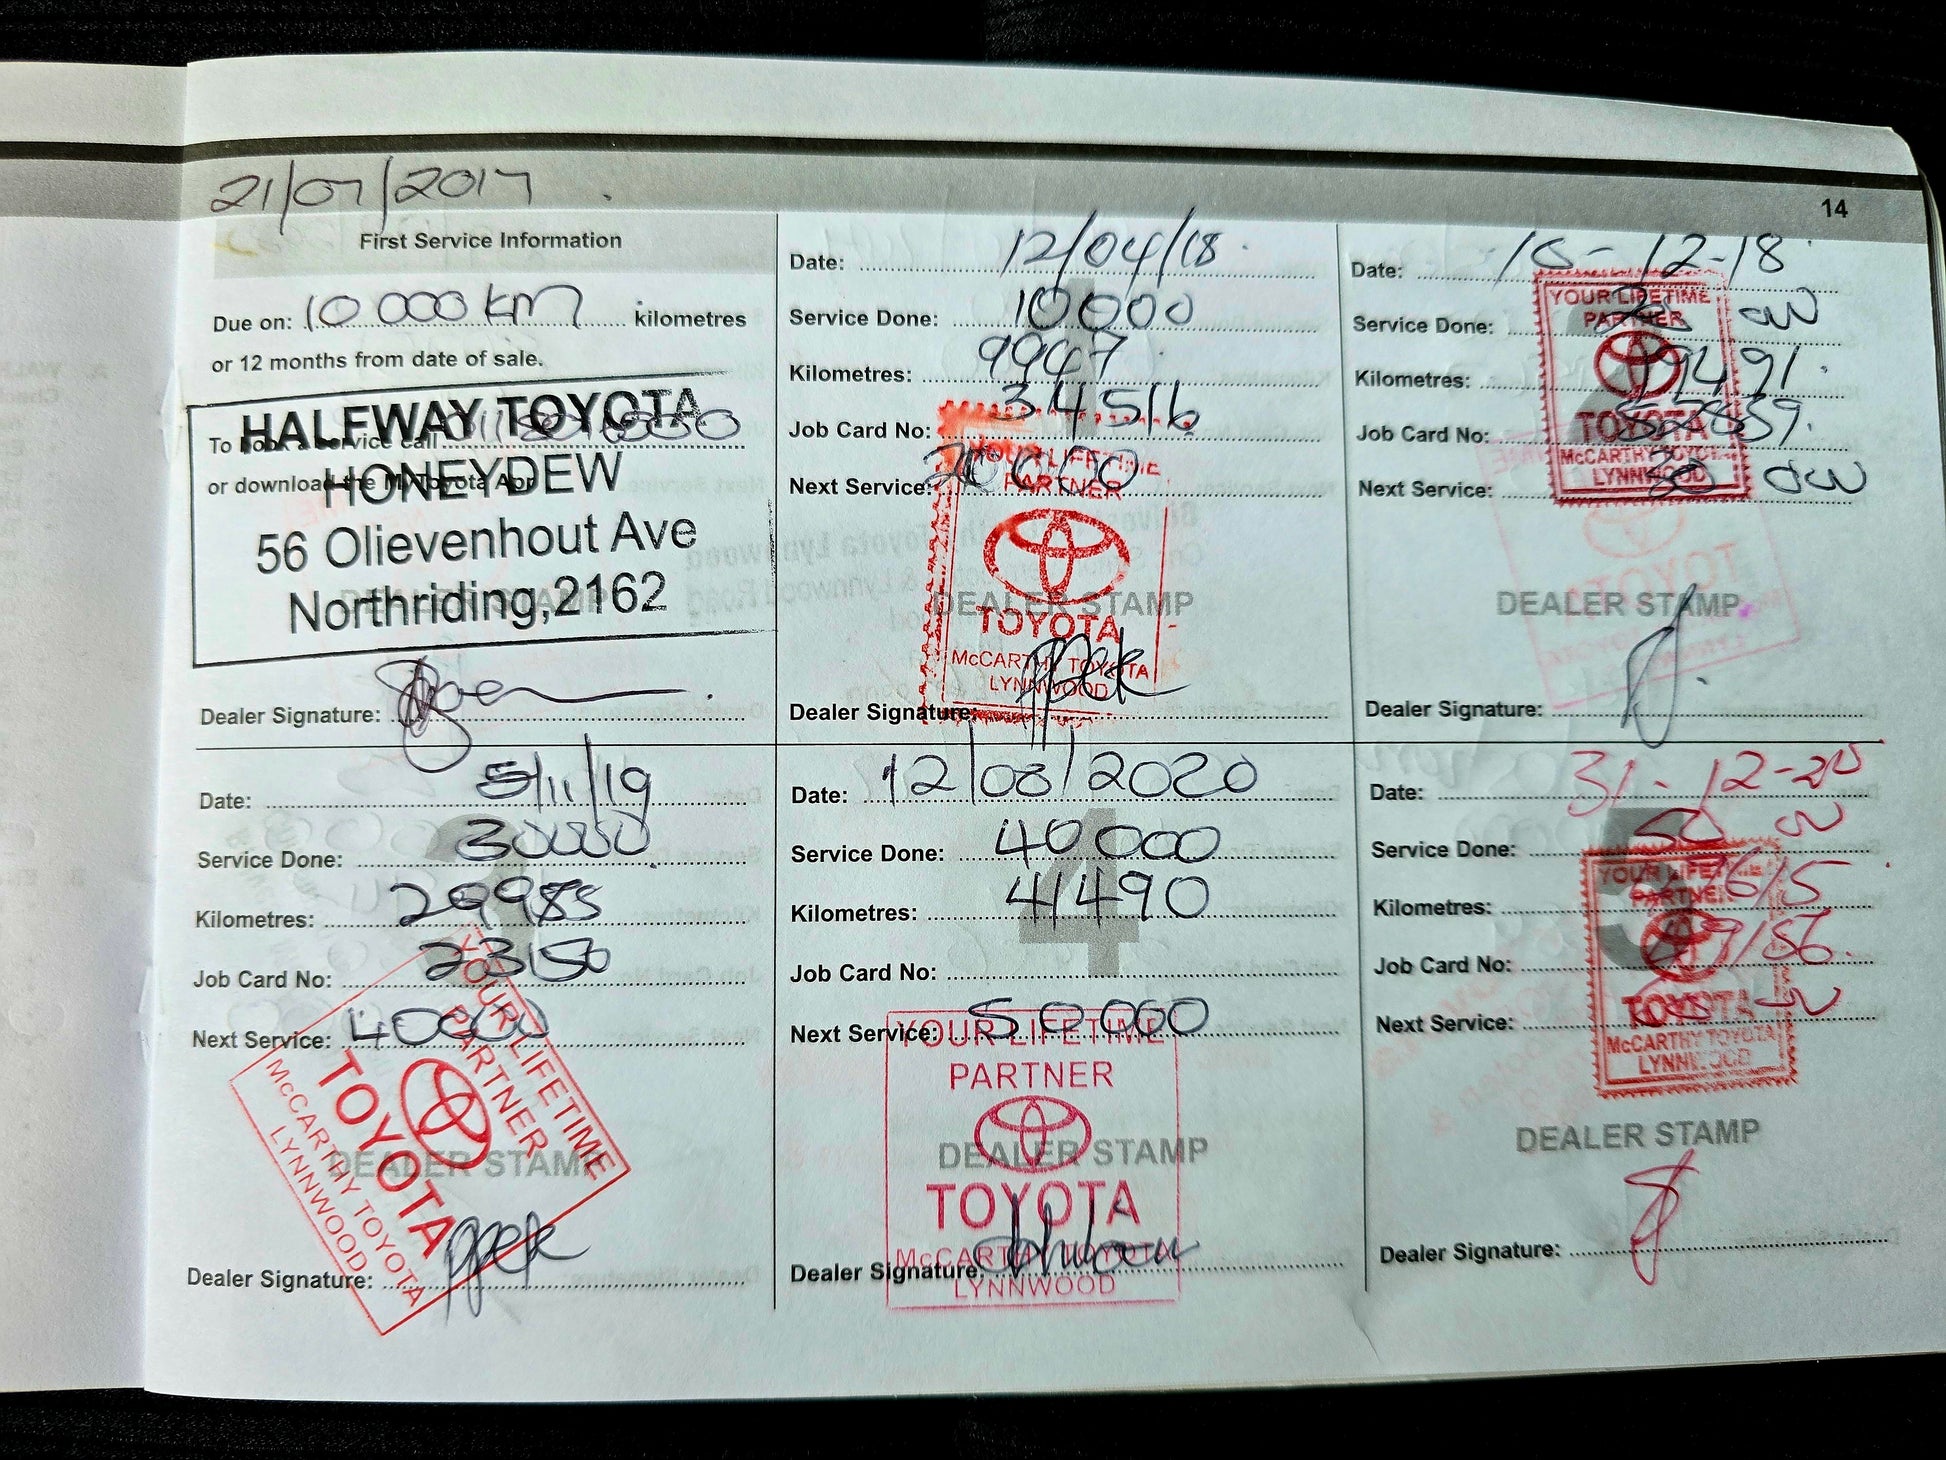 21/07/2017
14
First Service Information
Due on: 10 000 km kilometres
or 12 months from date of sale.
To book a service call
or download the MyToyota App
HALFWAY TOYOTA
HONEYDEW
56 Olievenhout Ave
Northriding,2162
Dealer Signature:
Date: 12/04/18
Service Done: 10000
Kilometres: 9947
Job Card No: 34516
Next Service: 20000
YOUR LIFETIME
PARTNER
DEALER STAMP
TOYOTA
McCARTHY TOYOTA
LYNNWOOD
Dealer Signature:
2
Date: 10-12-18
Service Done:
Kilometres: 19491
Job Card No:
Next Service: 30 000
YOUR LIFETIME
PARTNER
TOYOTA
McCARTHY TOYOTA
LYNNWOOD
DEALER STAMP
Dealer Signature:
3
Date: 5/11/19
Service Done: 30000
Kilometres: 29985
Job Card No: 23150
Next Service: 40000
YOUR LIFETIME
PARTNER
TOYOTA
McCARTHY TOYOTA
LYNNWOOD
DEALER STAMP
Dealer Signature:
4
Date: 12/08/2020
Service Done: 40 000
Kilometres: 41490
Job Card No:
Next Service: 50 000
YOUR LIFETIME
PARTNER
DEALER STAMP
TOYOTA
McCARTHY TOYOTA
LYNNWOOD
Dealer Signature:
5
Date: 31-12-20
Service Done: 50 000
Kilometres:
Job Card No:
Next Service:
YOUR LIFETIME
PARTNER
TOYOTA
McCARTHY TOYOTA
LYNNWOOD
DEALER STAMP
Dealer Signature: